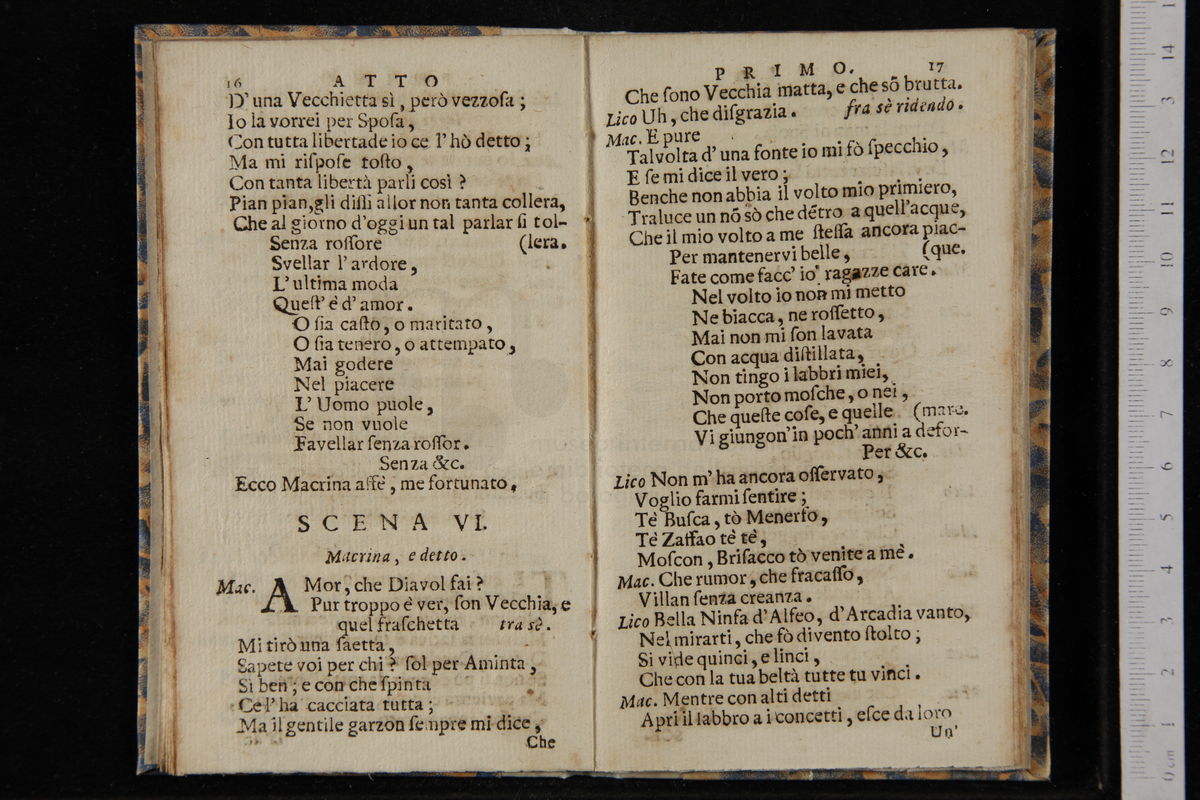 16 ATTO
D' una Vecchietta sì, però vezzoſa;
Io la vorrei per Spoſa,
Con tutta libertade io ce l' hò detto;
Ma mi riſpoſe toſto,
Con tanta libertà parli così?
Pian pian, gli diſſi allor non tanta collera,
Che al giorno d'oggi un tal parlar ſi tol-
Senza roſſore (lera.
Svellar l' ardore,
L' ultima moda
Queſt' è d' amor.
O ſia caſto, o maritato,
O ſia tenero, o attempato,
Mai godere
Nel piacere
L' Uomo puole,
Se non vuole
Favellar ſenza roſſor.
Senza &c.
Ecco Macrina affè, me fortunato.
SCENA VI.
Macrina, e detto.
Mac. AMor, che Diavol fai?
Pur troppo è ver, ſon Vecchia, e
quel fraſchetta tra sè.
Mi tirò una ſaetta,
Sapete voi per chi? ſol per Aminta,
Sì ben; e con che ſpinta
Ce l' ha cacciata tutta;
Ma il gentile garzon ſempre mi dice,
Che
PRIMO. 17
Che ſono Vecchia matta, e che sõ brutta.
Lico Uh, che diſgrazia. fra sè ridendo.
Mac. E pure
Talvolta d' una fonte io mi fò ſpecchio,
E ſe mi dice il vero;
Benche non abbia il volto mio primiero,
Traluce un nõ sò che détro a quell'acque,
Che il mio volto a me ſteſſa ancora piac-
Per mantenervi belle, (que.
Fate come facc' io, ragazze care.
Nel volto io non mi metto
Ne biacca, ne roſſetto,
Mai non mi ſon lavata
Con acqua diſtillata,
Non tingo i labbri miei,
Non porto moſche, o nei,
Che queſte coſe, e quelle (mare.
Vi giungon' in poch' anni a defor-
Per &c.
Lico Non m' ha ancora oſſervato,
Voglio farmi ſentire;
Tè Buſca, tò Menerſo,
Tè Zaffao tè tè,
Moſcon, Briſacco tò venite a mè.
Mac. Che rumor, che fracaſſo,
Villan ſenza creanza.
Lico Bella Ninfa d' Alfeo, d' Arcadia vanto,
Nel mirarti, che fò divento ſtolto;
Si vide quinci, e linci,
Che con la tua beltà tutte tu vinci.
Mac. Mentre con alti detti
Apri il labbro a i concetti, eſce da loro
Un'